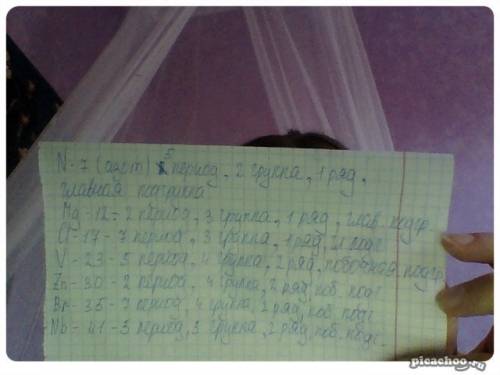 N-7 (азот) 5 период, 2 группа, 1 ряд,
главная подгруппа
Mg-12-2 период, 3 группа, 1 ряд, глав. подгр.
Cl-17-7 период, 3 группа, 1 ряд, гл подг.
V-23-5 период, 4 группа, 2 ряд, побочная подгр.
Zn-30-2 период, 4 группа, 2 ряд, поб. подг.
Br-35-7 период, 4 группа, 2 ряд, поб. подг.
Nb-41-5 период, 5 группа, 2 ряд, поб. подг.
picachoo.ru